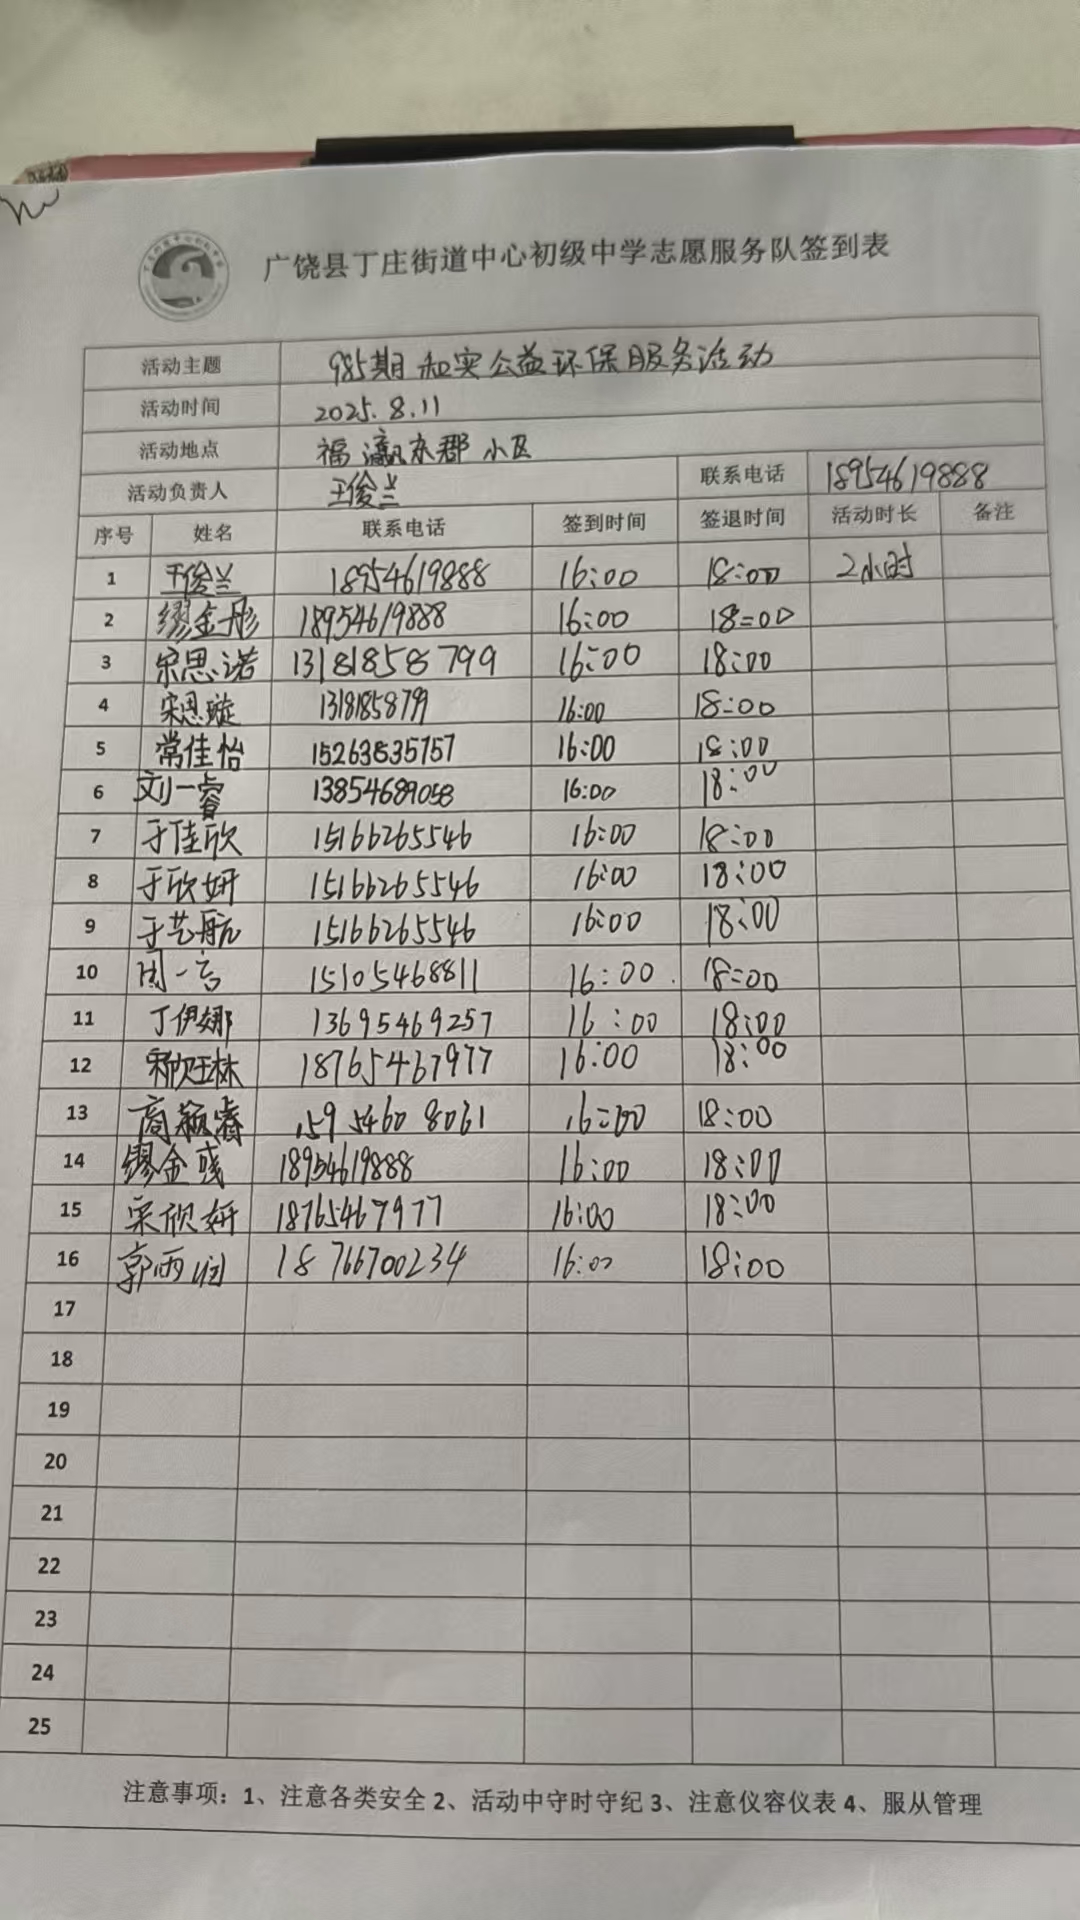 广饶县丁庄街道中心初级中学志愿服务队签到表
活动主题 985期和实公益环保服务活动
活动时间 2025.8.11
活动地点 福瀛东郡小区
活动负责人 王俊兰 联系电话 18954619888
序号 姓名 联系电话 签到时间 签退时间 活动时长 备注
1 王俊兰 18954619888 16:00 18:00 2小时
2 缪金彤 18954619888 16:00 18:00
3 宋思诺 13181858799 16:00 18:00
4 宋思璇 13181858799 16:00 18:00
5 常佳怡 15263835757 16:00 18:00
6 刘一睿 13854689058 16:00 18:00
7 于佳欣 15166265546 16:00 18:00
8 于欣妍 15166265546 16:00 18:00
9 于艺航 15166265546 16:00 18:00
10 周一言 15105468811 16:00 18:00
11 丁伊娜 13695469257 16:00 18:00
12 宋欣玨林 18765467977 16:00 18:00
13 商颖睿 15954608061 16:00 18:00
14 缪金彧 18954619888 16:00 18:00
15 宋欣妍 18765467977 16:00 18:00
16 郭雨润 18766700234 16:00 18:00
17
18
19
20
21
22
23
24
25
注意事项：1、注意各类安全 2、活动中守时守纪 3、注意仪容仪表 4、服从管理